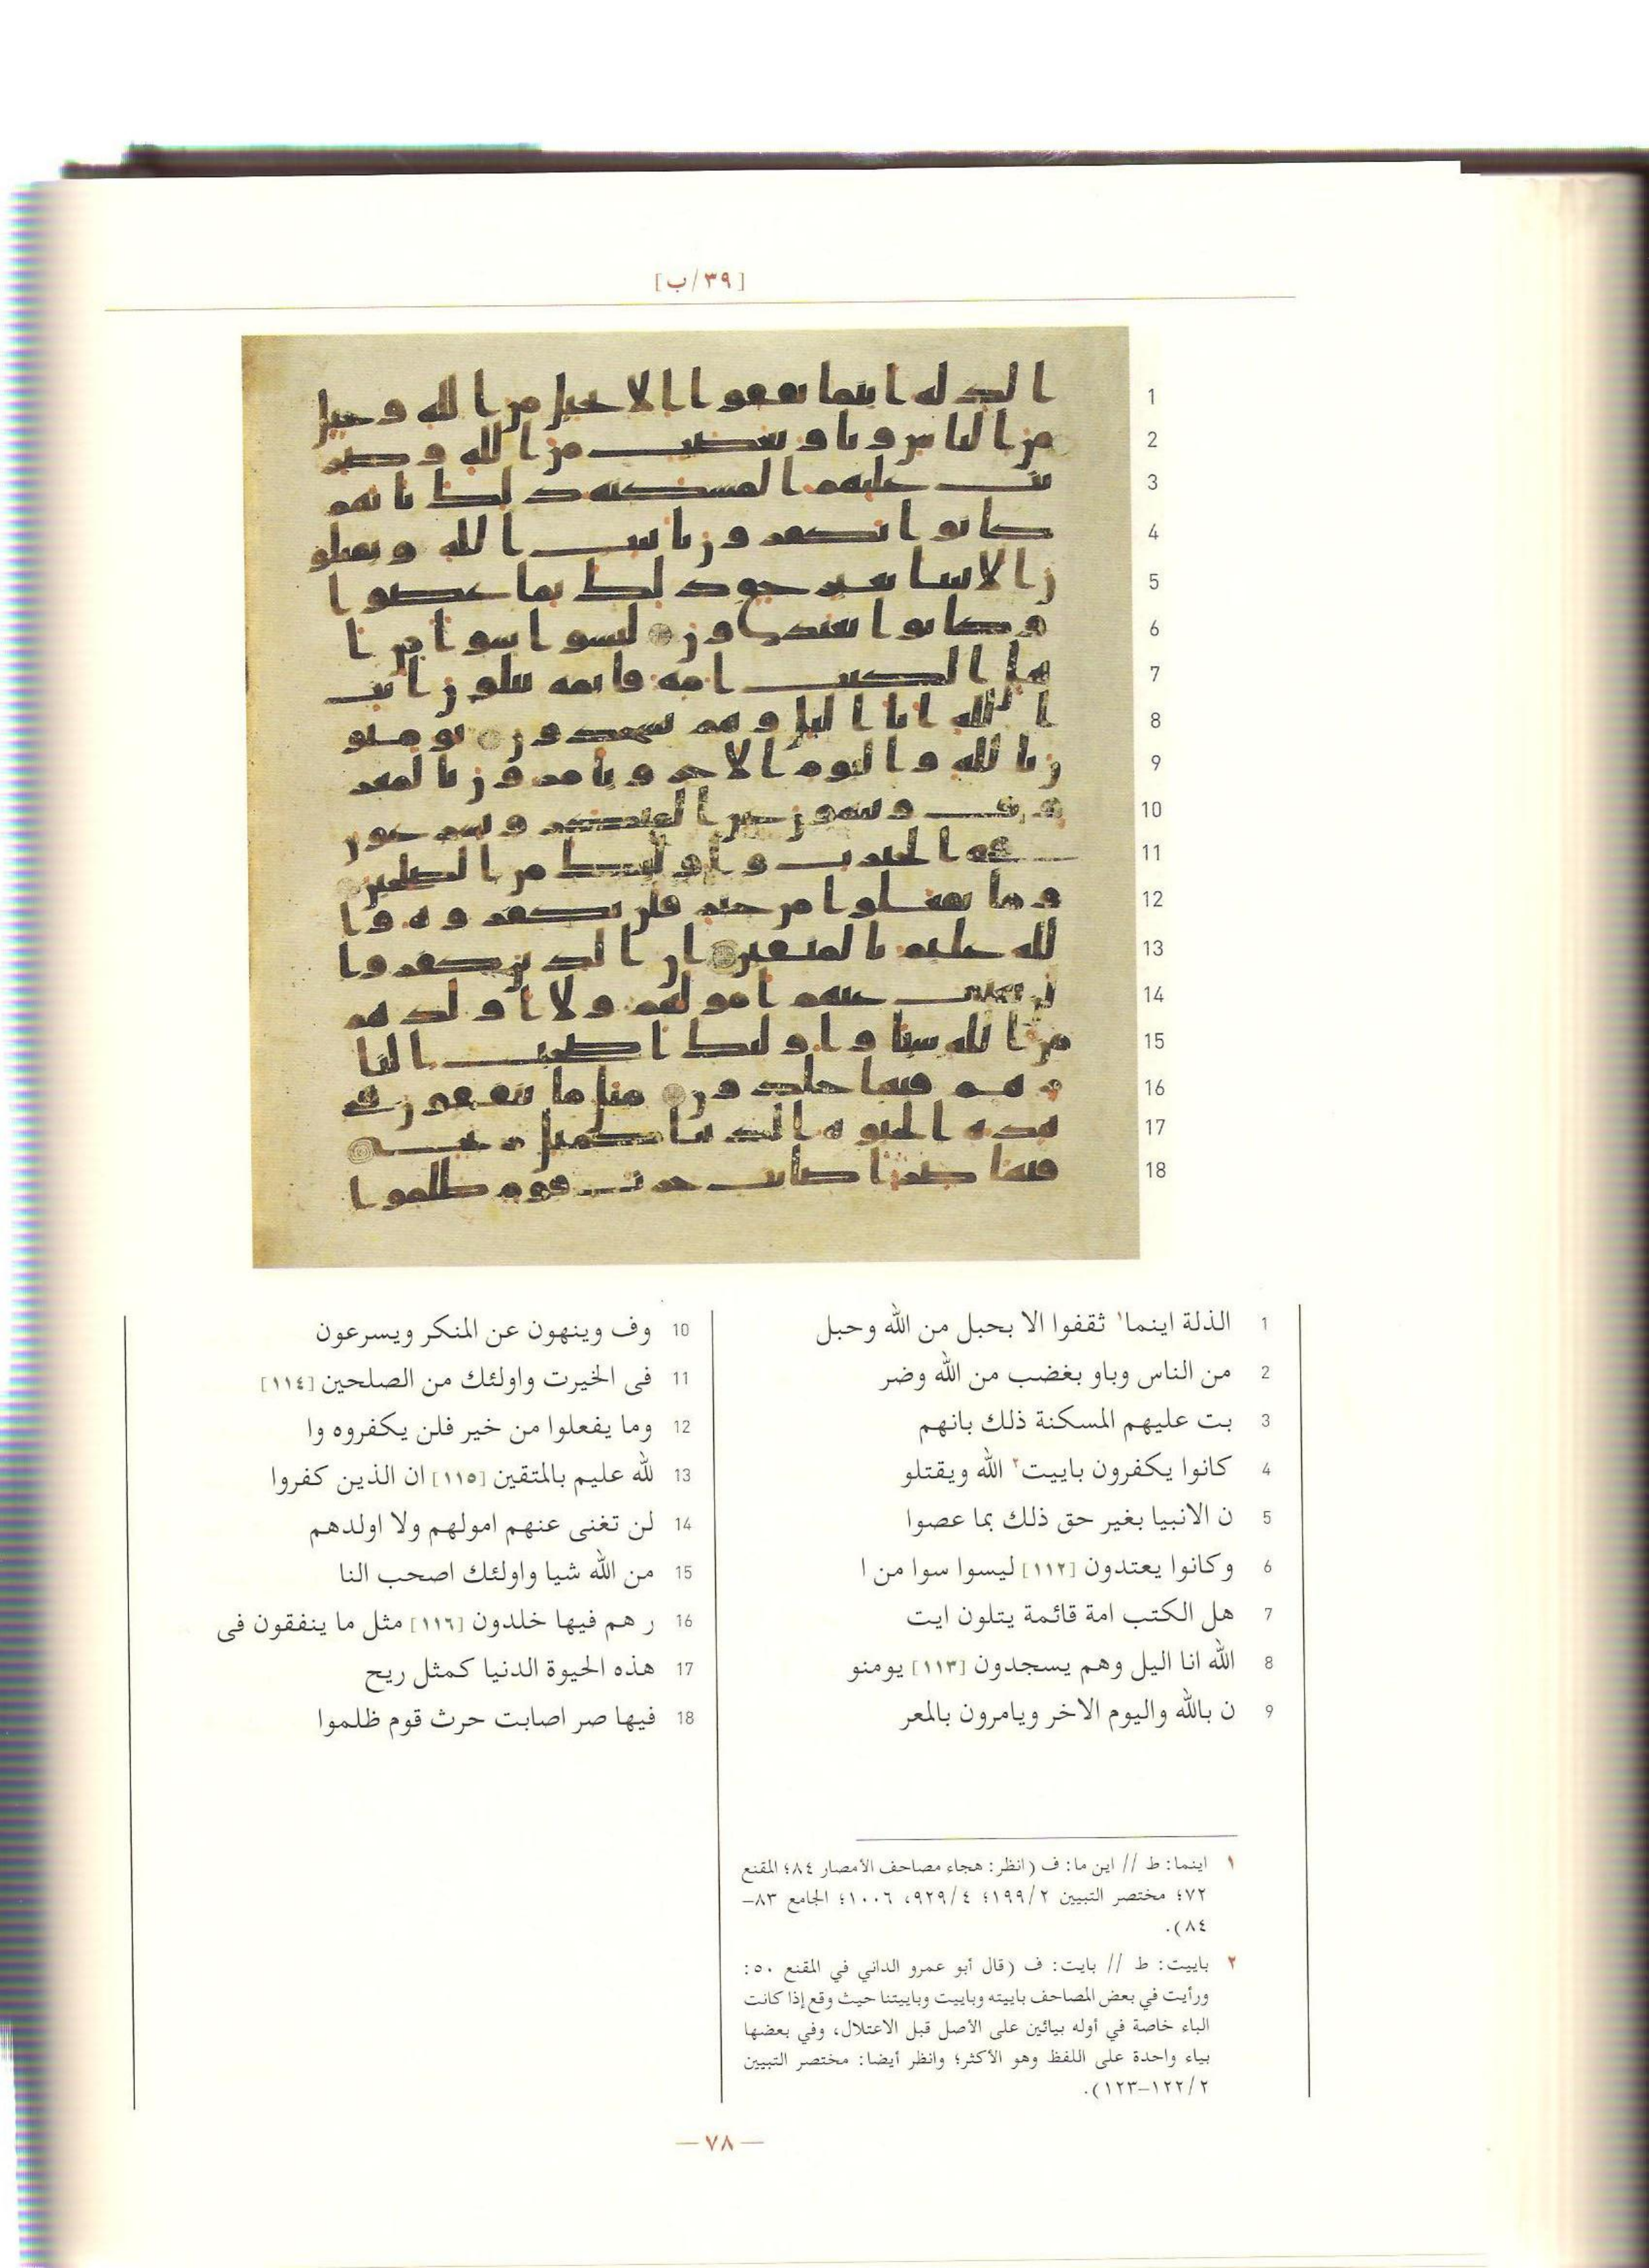 [٣٩/ب]
1 الذلة اينما١ ثقفوا الا بحبل من الله وحبل
2 من الناس وباو بغضب من الله وضر
3 بت عليهم المسكنة ذلك بانهم
4 كانوا يكفرون باييت٢ الله ويقتلو
5 ن الانبيا بغير حق ذلك بما عصوا
6 وكانوا يعتدون [١١٢] ليسوا سوا من ا
7 هل الكتب امة قائمة يتلون ايت
8 الله انا اليل وهم يسجدون [١١٣] يومنو
9 ن بالله واليوم الاخر ويامرون بالمعر
10 وف وينهون عن المنكر ويسرعون
11 فى الخيرت واولئك من الصلحين [١١٤]
12 وما يفعلوا من خير فلن يكفروه وا
13 لله عليم بالمتقين [١١٥] ان الذين كفروا
14 لن تغنى عنهم امولهم ولا اولدهم
15 من الله شيا واولئك اصحب النا
16 ر هم فيها خلدون [١١٦] مثل ما ينفقون فى
17 هذه الحيوة الدنيا كمثل ريح
18 فيها صر اصابت حرث قوم ظلموا
١ اينما: ط // اين ما: ف (انظر: هجاء مصاحف الأمصار ٨٤؛ المقنع
٧٢؛ مختصر التبيين ١٩٩/٢؛ ٩٢٩/٤، ١٠٠٦؛ الجامع ٨٣–
٨٤).
٢ باييت: ط // بايت: ف (قال أبو عمرو الداني في المقنع ٥٠:
ورأيت في بعض المصاحف باييته وباييت وباييتنا حيث وقع إذا كانت
الباء خاصة في أوله بيائين على الأصل قبل الاعتلال، وفي بعضها
بياء واحدة على اللفظ وهو الأكثر؛ وانظر أيضا: مختصر التبيين
١٢٢/٢–١٢٣).
— ٧٨ —